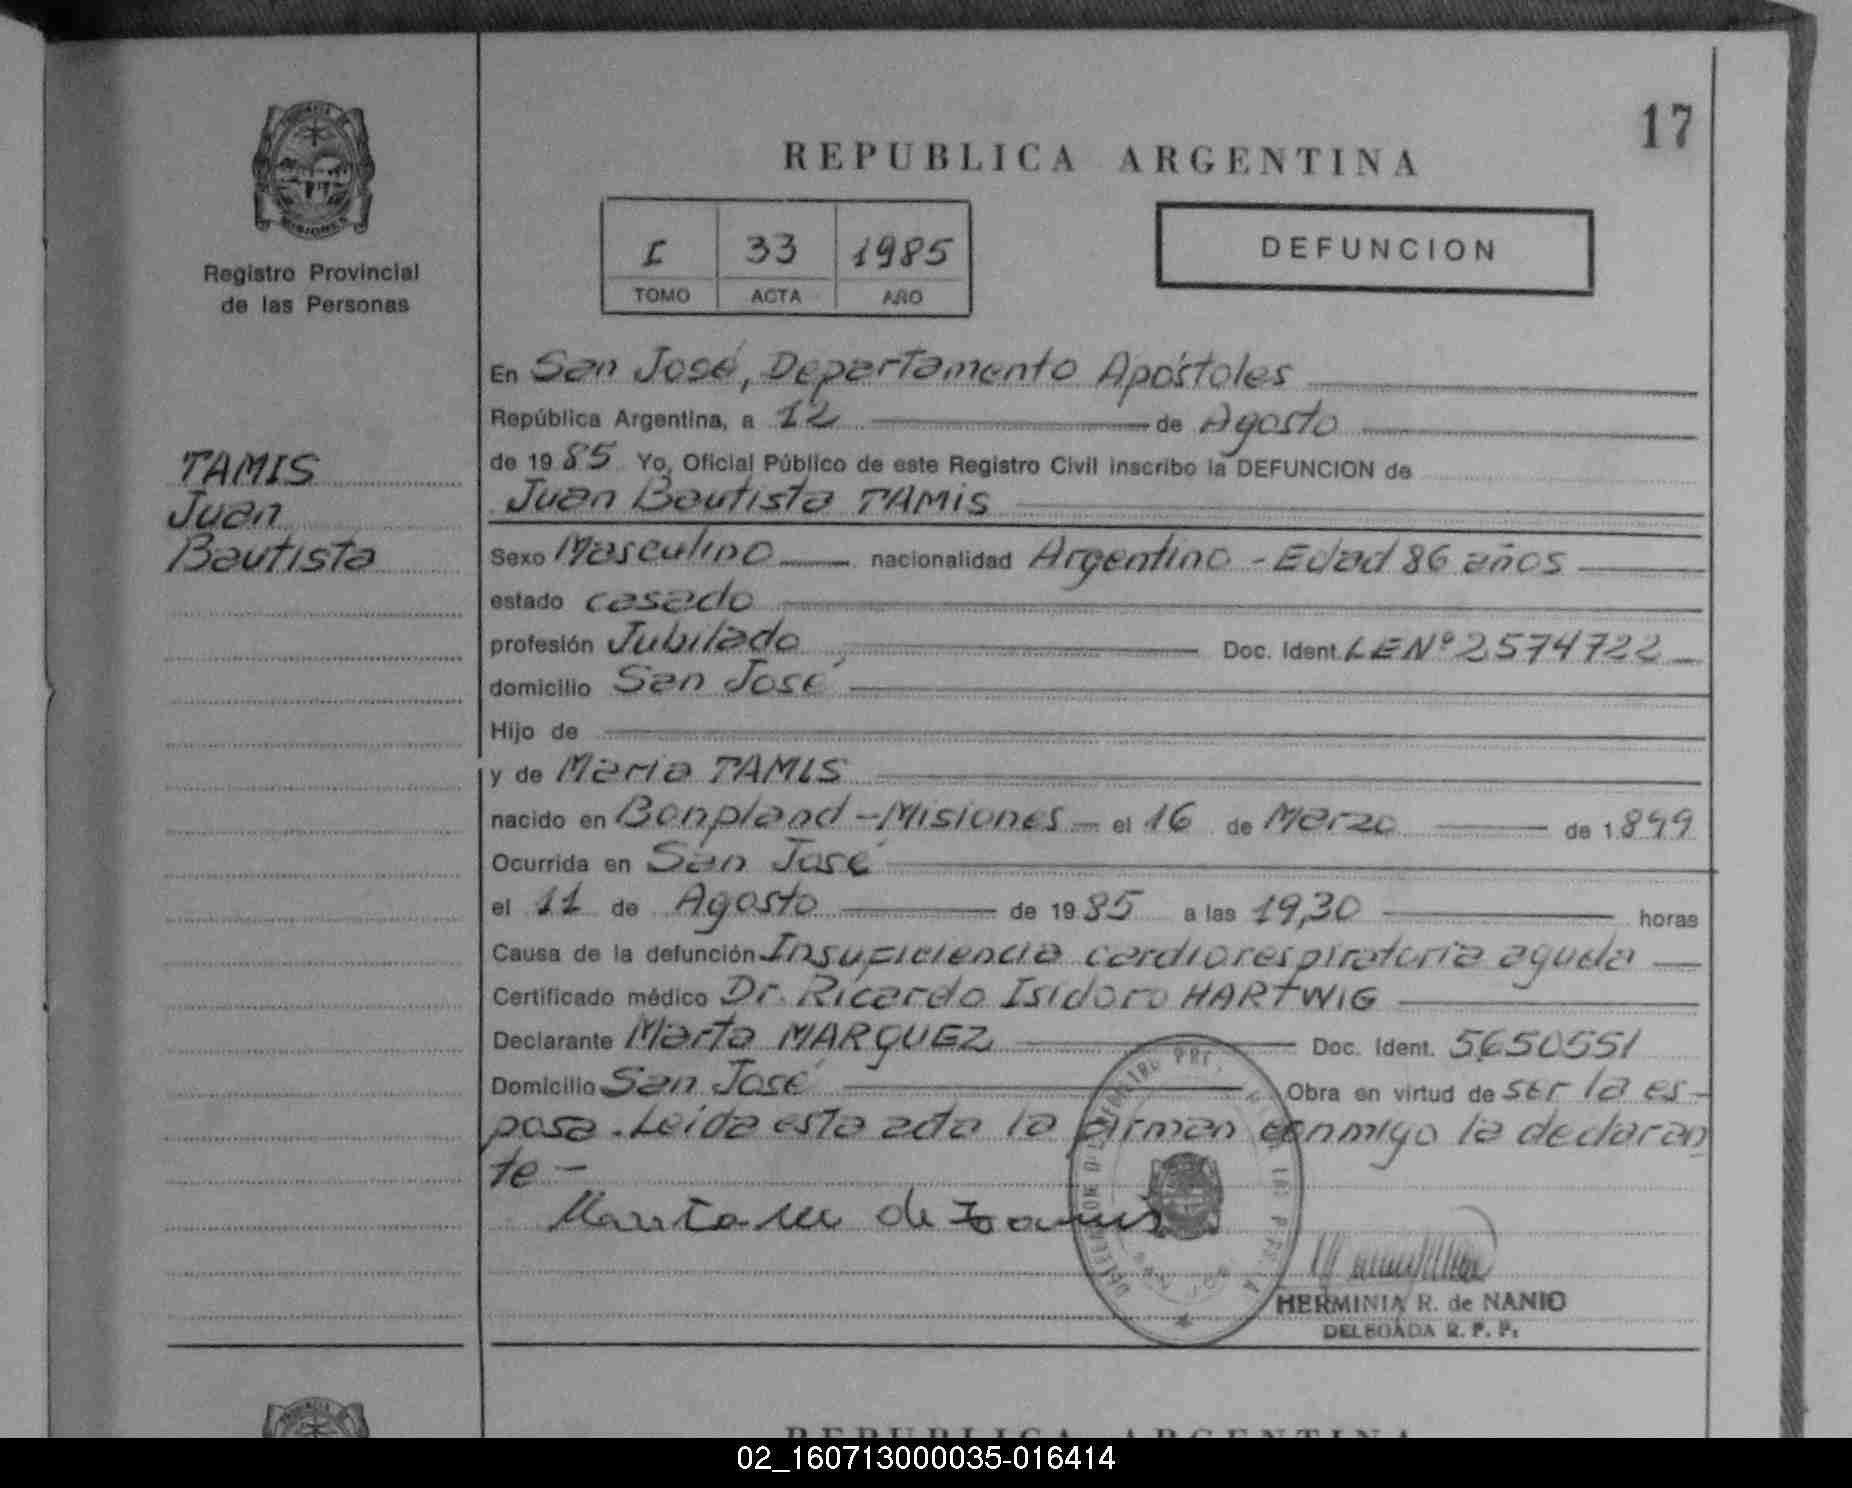 17
REPUBLICA ARGENTINA
Registro Provincial
de las Personas
I 33 1985
TOMO ACTA AÑO
DEFUNCION
TAMIS
Juan
Bautista
En San José, Departamento Apóstoles
República Argentina, a 12 de Agosto
de 19 85 Yo, Oficial Público de este Registro Civil inscribo la DEFUNCION de
Juan Bautista TAMIS
Sexo Masculino nacionalidad Argentino - Edad 86 años
estado casado
profesión Jubilado Doc. Ident. LE Nº 2574722
domicilio San José
Hijo de
y de Maria TAMIS
nacido en Bonpland - Misiones el 16 de Marzo de 1.899
Ocurrida en San José
el 11 de Agosto de 19 85 a las 19,30 horas
Causa de la defunción Insuficiencia cardiorespiratoria aguda
Certificado médico Dr. Ricardo Isidoro HARTWIG
Declarante Marta MARQUEZ Doc. Ident. 5650551
Domicilio San José Obra en virtud de ser la es-
posa. Leída esta acta la firman conmigo la declaran
te -
Marta M de Tamis
HERMINIA R. de NANIO
DELEGADA R. P. P.
REPUBLICA ARGENTINA
02_160713000035-016414